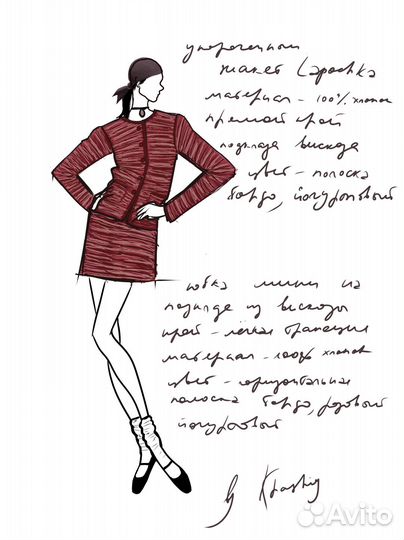 укороченный
жакет Lapochka
материал - 100% хлопок
прямой крой
подклада вискоза
цвет - полоска
бордо, йогуртовый
юбка мини на
подкладе из вискозы
крой - лёгкая трапеция
материал - 100% хлопок
цвет - горизонтальная
полоска бордо, розовый
йогуртовый
by
Avito